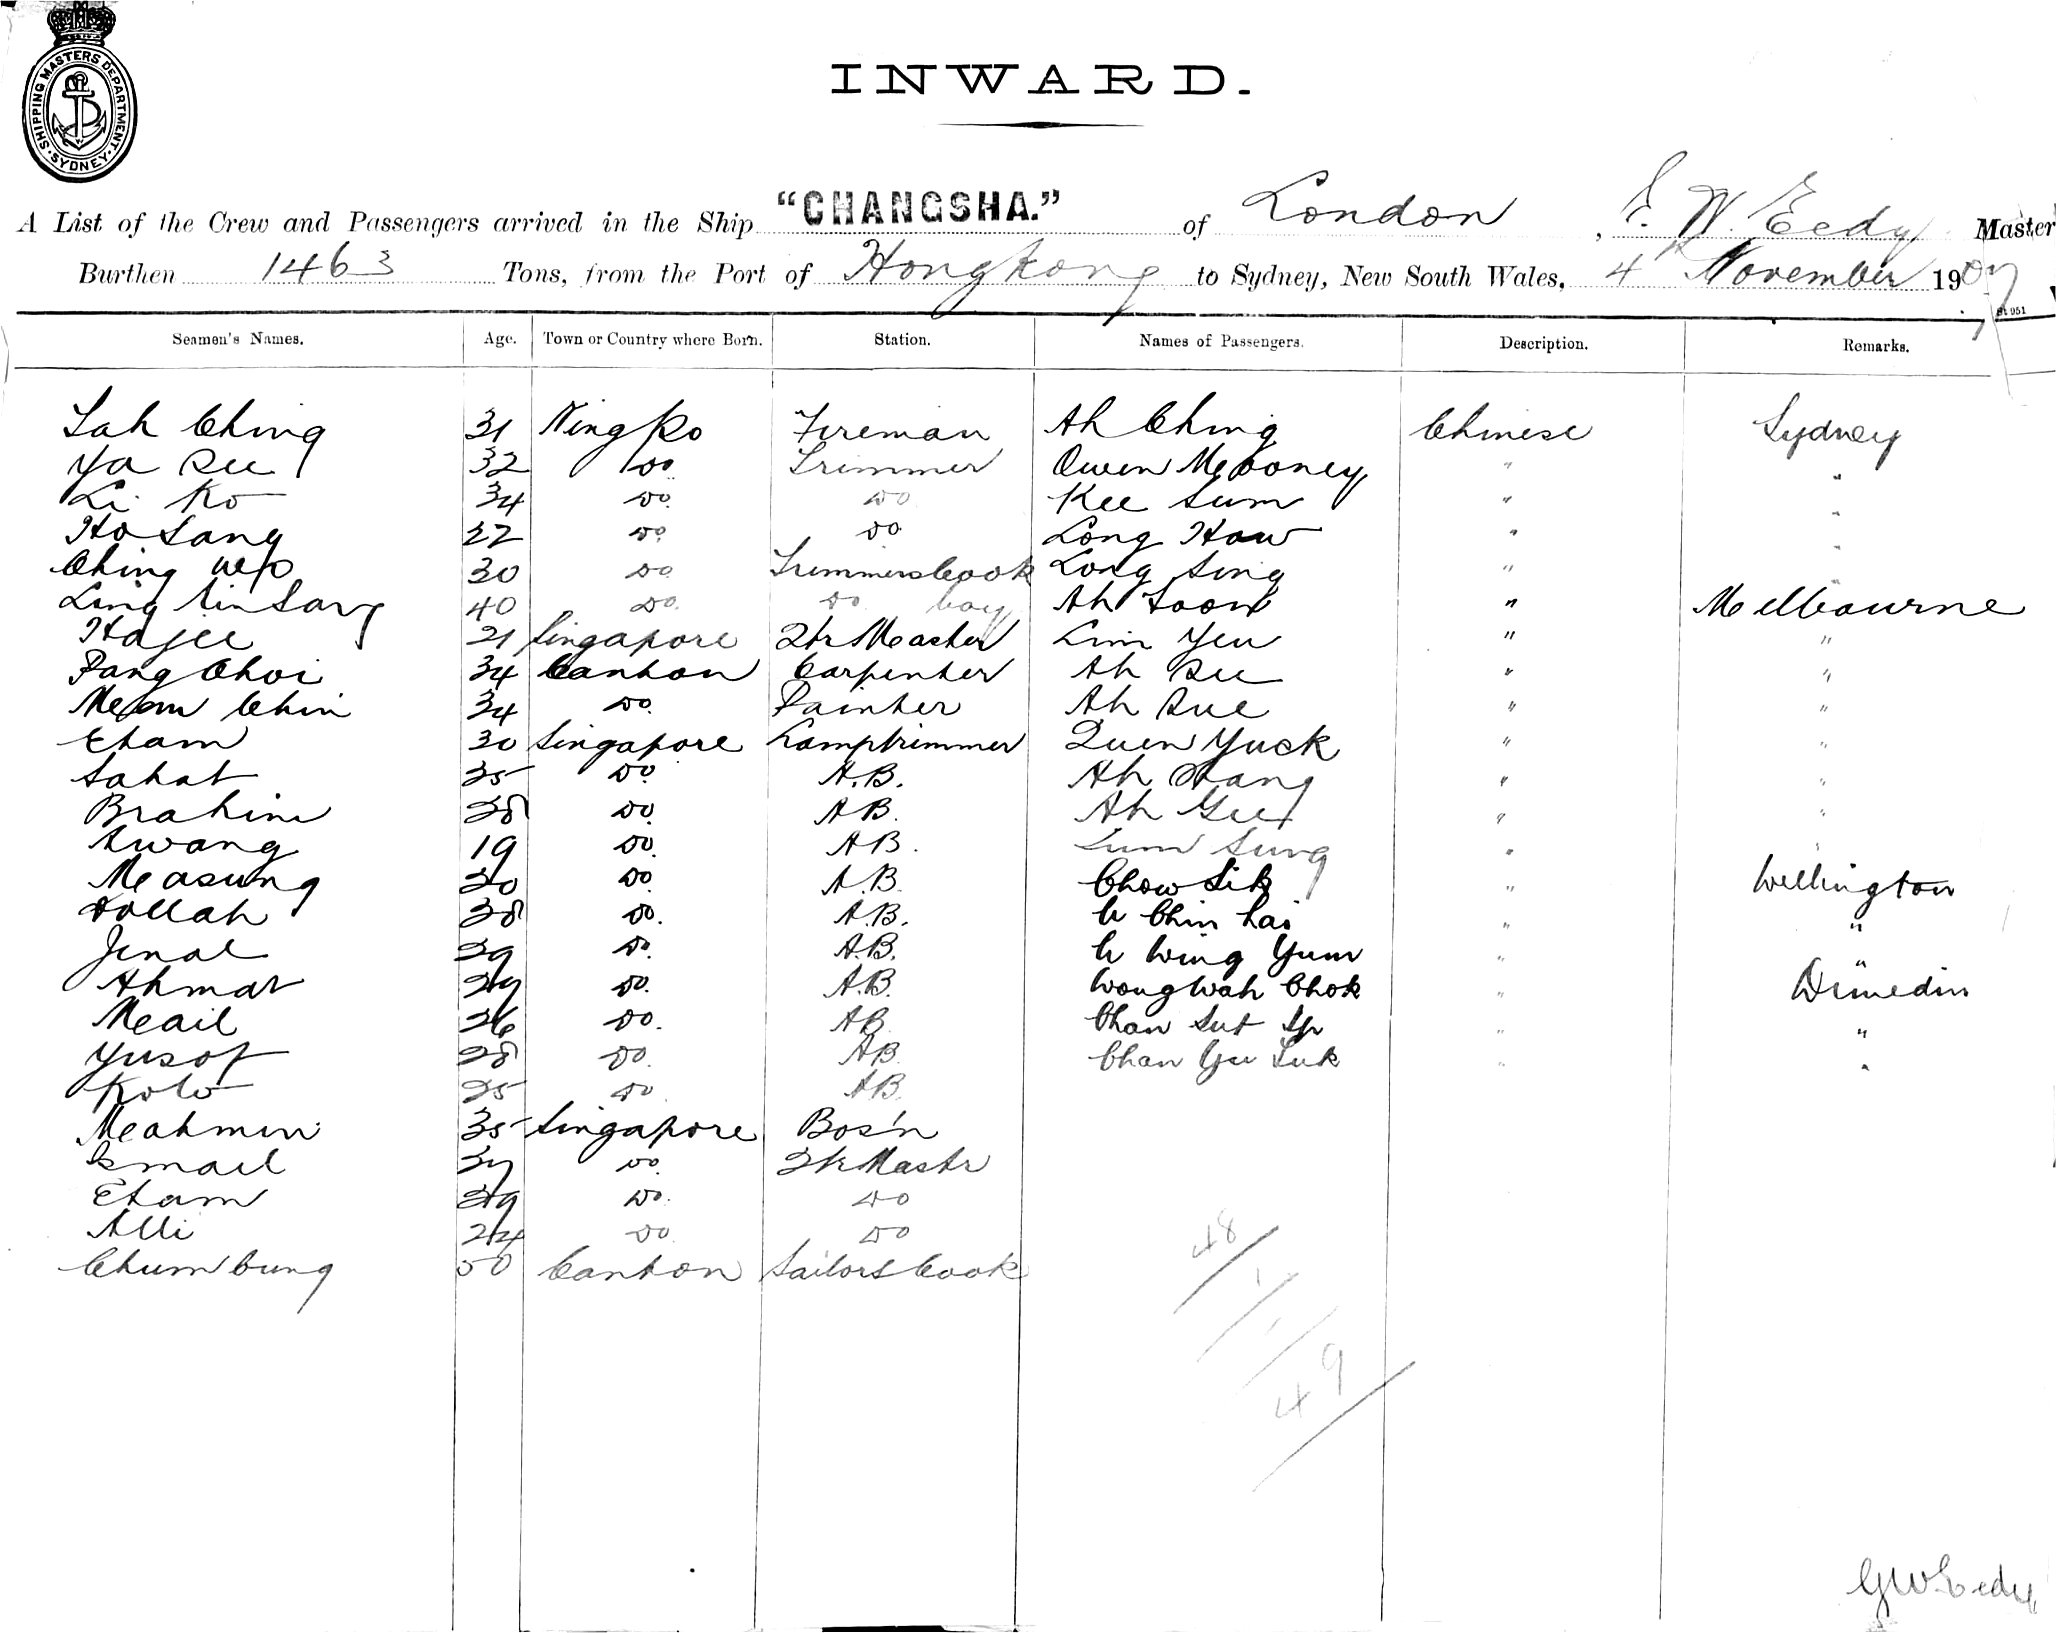 SHIPPING MASTERS DEPARTMENT. SYDNEY.
INWARD.
A List of the Crew and Passengers arrived in the Ship "CHANGSHA." of London, G. W. Eedy Master
Burthen 1463 Tons, from the Port of Hongkong to Sydney, New South Wales, 4 November 1907
Seamen's Names. Age. Town or Country where Born. Station. Names of Passengers. Description. Remarks.
Sah Ching 31 Ningpo Fireman Ah Ching Chinese Sydney
Ya See 32 Do. Trimmer Owen Mooney " "
Li Ko 34 Do. Do Kee Sum " "
Ho Sang 22 Do Do Long How " "
Ching 30 Do Trimmers Cook Long Sing " "
Ling Sin Sang 40 Do. Do boy Ah Soon " Melbourne
Hajee 21 Singapore Qtr Master Lim Yew " "
Pang Choi 34 Canton Carpenter Ah See " "
Meow Chin 34 Do. Painter Ah Sue " "
Etam 30 Singapore Lamptrimmer Quen Yuck " "
Sahat 35 Do. A.B. Ah Wang " "
Brahim 38 Do. A B. Ah Gee " "
Awang 19 Do. A B. Lum Sung " "
Measung 30 Do. A.B. Chow Sik " Wellington
Dollah 38 Do. A.B. U Chin Kai " "
Jenal 29 Do. A.B. U Wing Yum " "
Ahmat 29 Do. A.B. Wong Wah Chok " Dunedin
Meail 26 Do. A B. Chan Sut Ip " "
Yusof 28 Do. A B Chan Yu Suk " "
Koto 25 Do A B.
Meahmin 35 Singapore Bos'n
Ismail 37 Do. Qtr Mastr
Etam 29 Do. Do
Alli 24 Do. Do
Chum Cung 50 Canton Sailors Cook
48
1
1
49
GWEedy